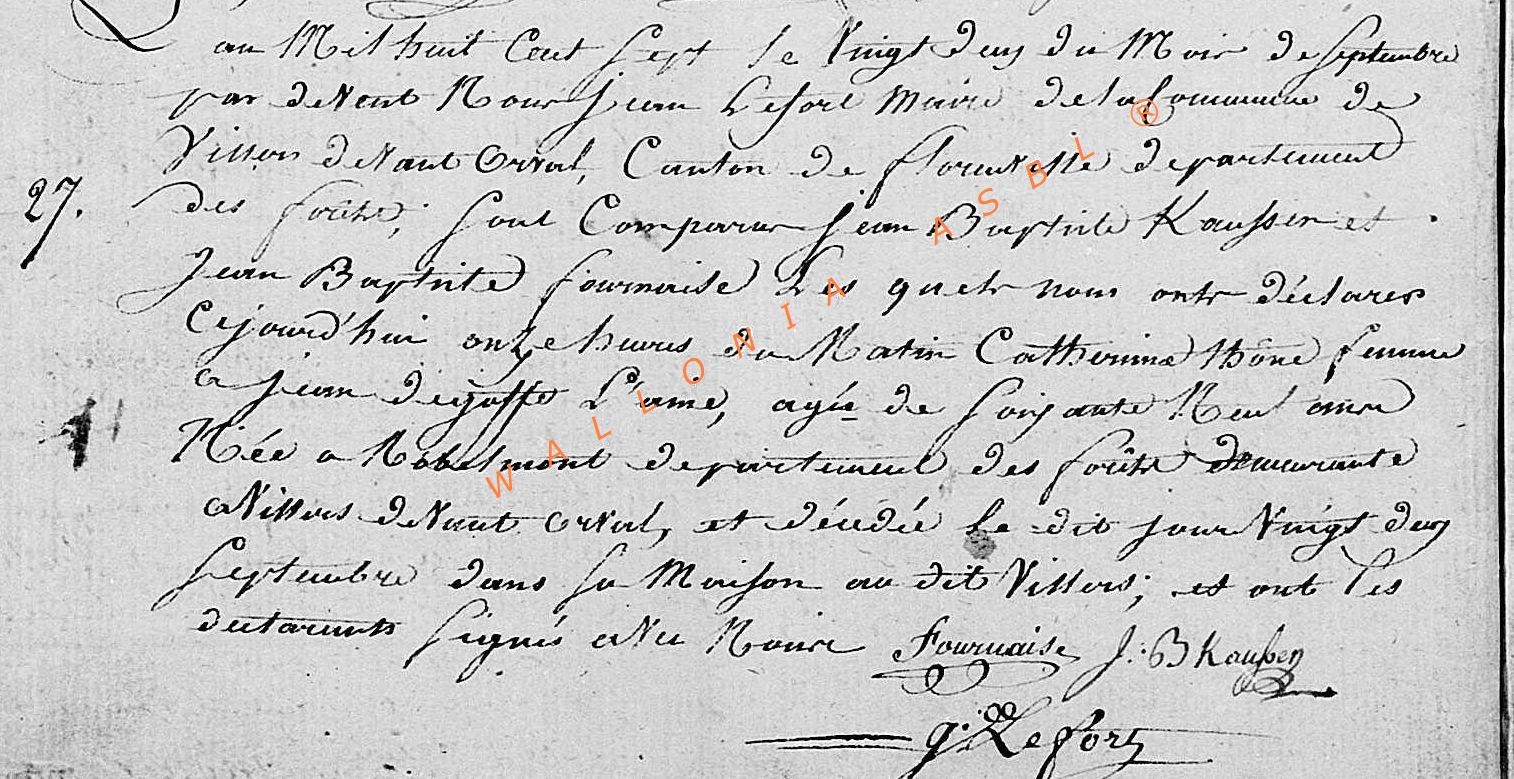 L'an Mil huit Cent Sept le Vingt deux du Mois de Septembre
par devent Nous Jean Lefort Maire de la Commune de
Villers devant Orval, Canton de florenville departement
27. des forêts; sont Comparus Jean Baptiste Kaussen et
Jean Baptiste fournaise Les quels nous onts déclarés
Cejourd'hui onze heures du Matin Catherinne thône femme
a Jean degoffe L'ainé, agée de soixante Neuf anns
Née a Robelmont departement des forêts demeurante
a Villers devant orval, et décédée le dit jour Vingt deux
Septembre dans sa Maison au dit Villers; et ont les
declarants signés avec Nous Fournaise J: B Kaussen
Lefort
WALLONIA ASBL ®